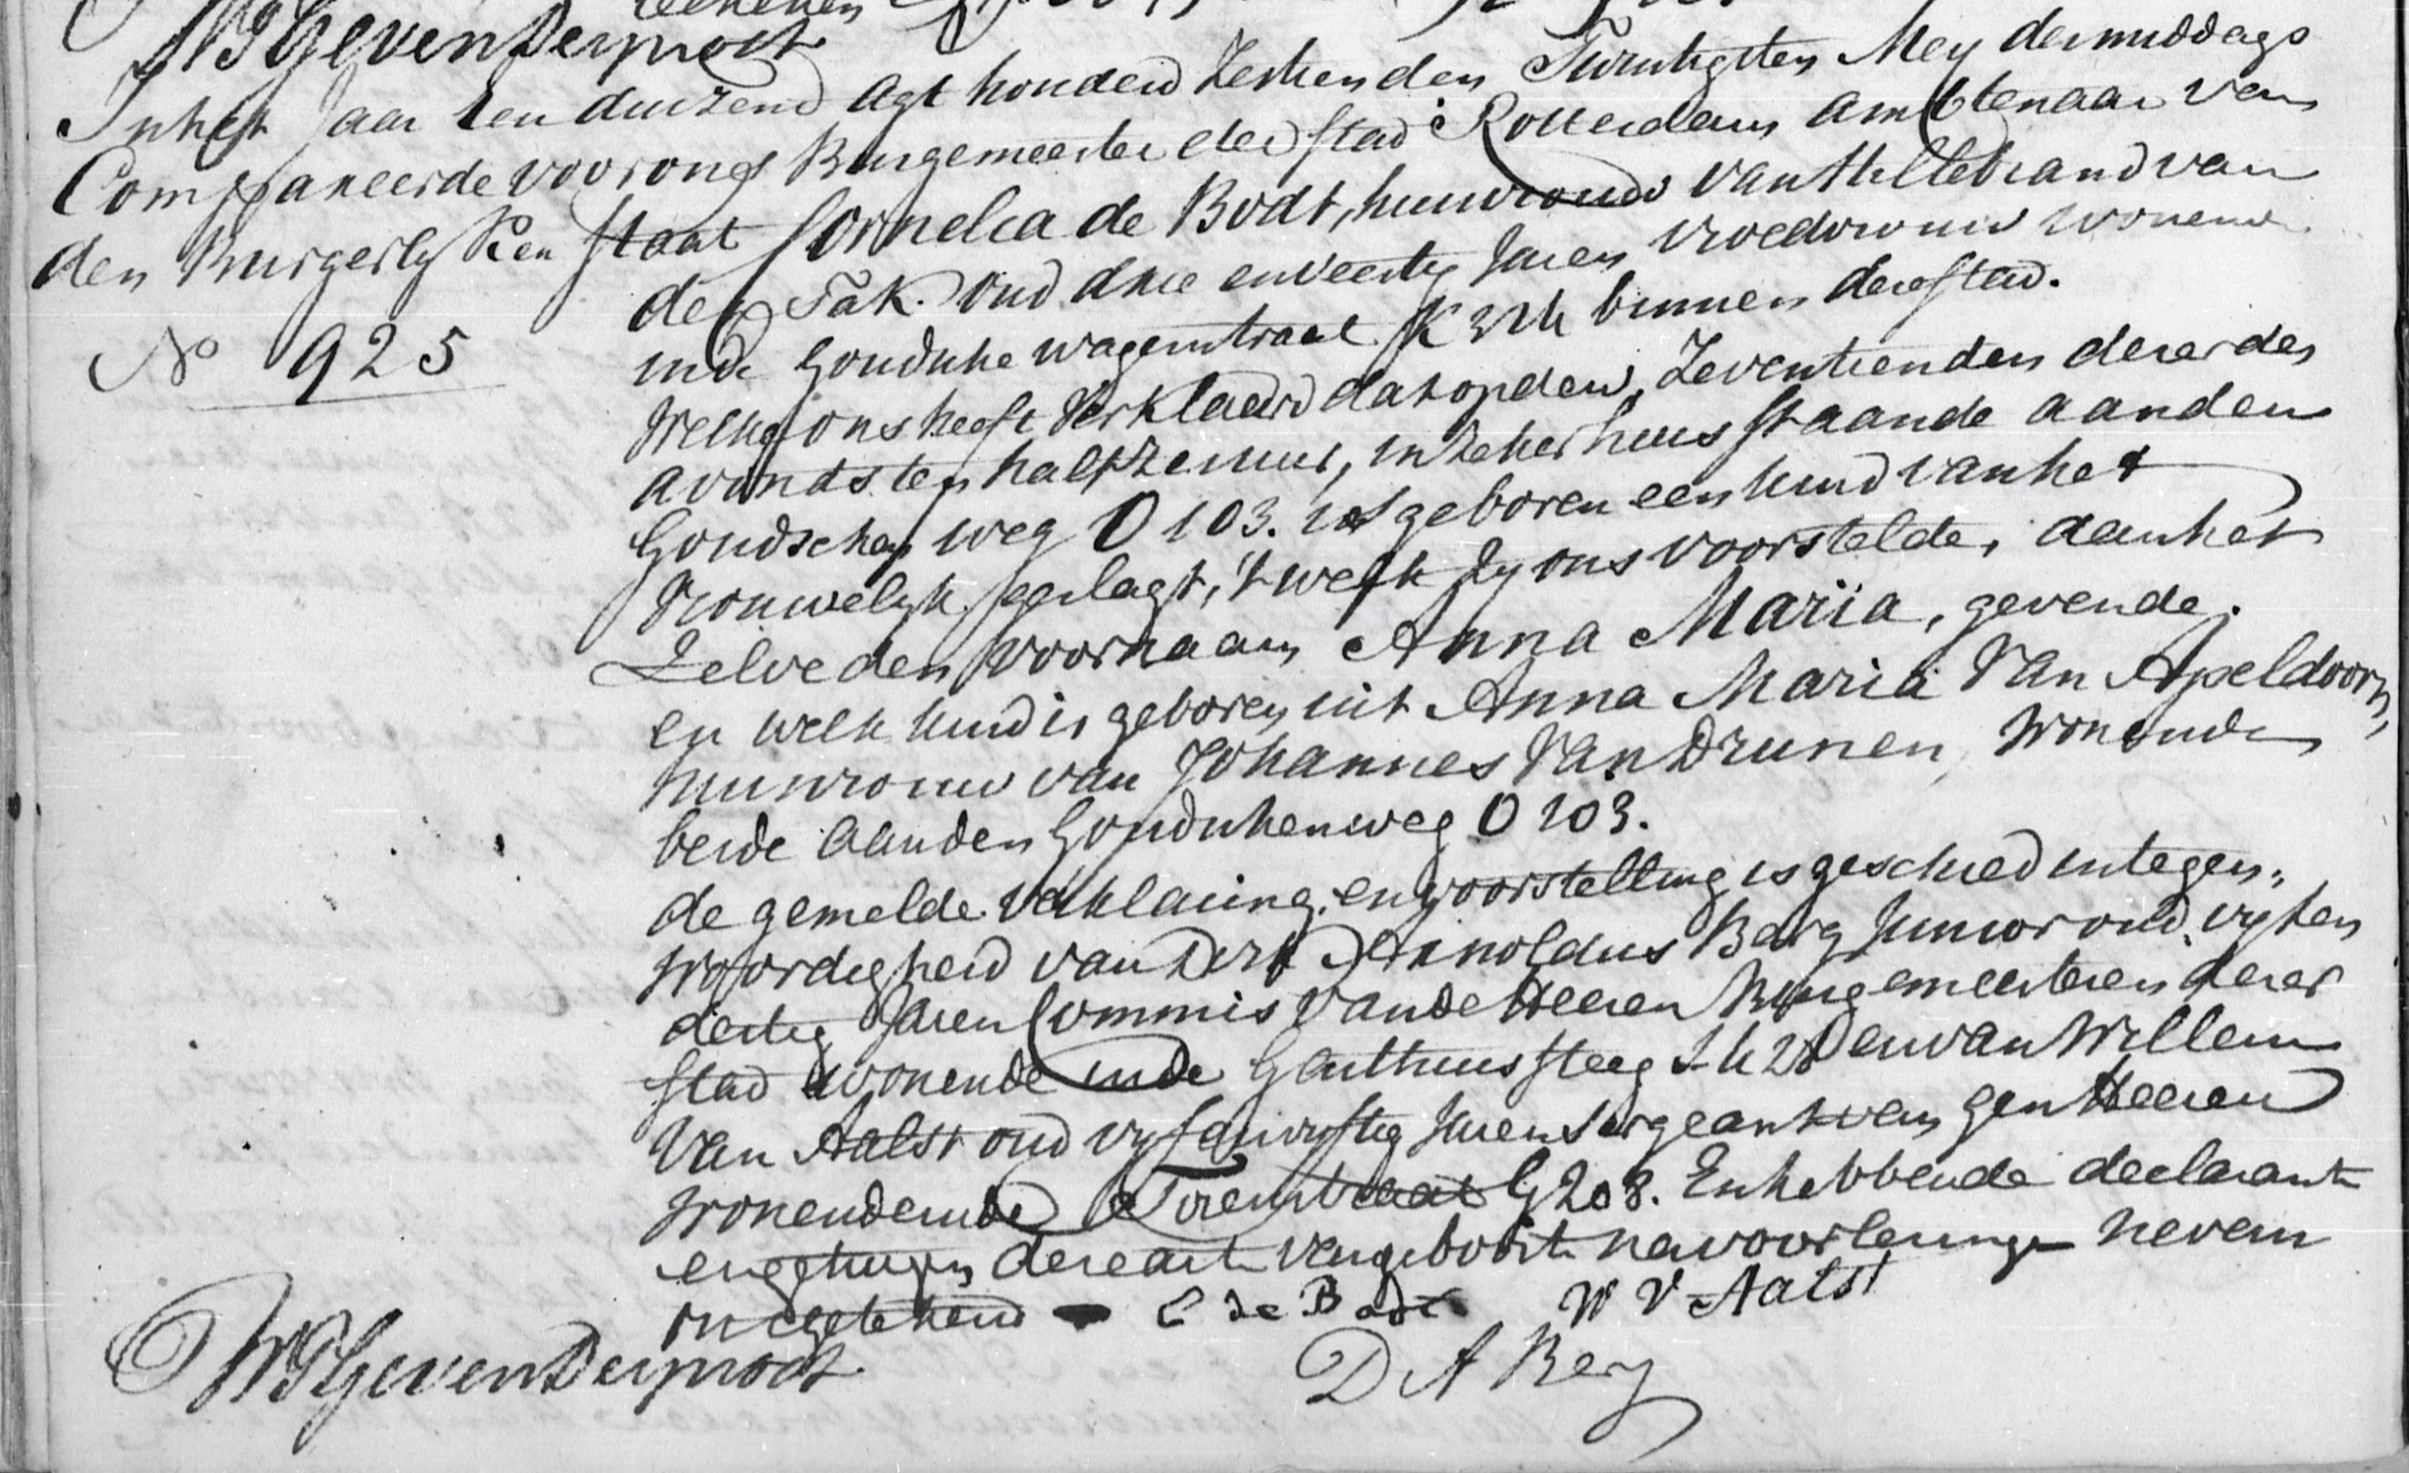 teekenen
WS Geven Deynoot
In het Jaar Een duizend Agt honderd Zestien den Twintigsten Mey des middags
Compareerde voor ons Burgemeester der stad Rotterdam Ambtenaar van
den Burgerlyken Staat Cornelia de Bodt, huisvrouw van Hillebrand van
der Tak. Oud drie en veertig Jaren vroedvrouw wonende
in de Goudsche wagenstraat K binnen dese stad.
Welke ons heeft Verklaard dat op den Zeventienden deser des
avonds ten half zes uur, in zeker huis staande aan den
Goudschen weg O 103. is geboren een kind van het
Vrouwelyk geslagt, 't welk zy ons voorstelde, aan het
Zelve den voornaam Anna Maria, gevende.
en welk kind is geboren uit Anna Maria Van Apeldoorn,
huisvrouw van Johannes Van Drunen, Wonende
beide aan den Goudschenweg O 103.
de gemelde Verklaring en voorstelling is geschied in tegen„
woordigheid van Dirk Arnoldus Berg Junior oud vyf en
dertig Jaren Commis van de Heeren Burgemeesteren deser
stad wonende in de Gasthuis steeg en van Willem
Van Aalst oud vyf en vyftig Jaren Sergeant van gen Heeren
Wonende in de Torenstraat G 208. En hebben de declarante
en getuigen dese acte van geboorte na voorlezinge nevens
ons getekend — C de Bodt W V Aalst
WS Geven Deynoot D A Berg
No 925